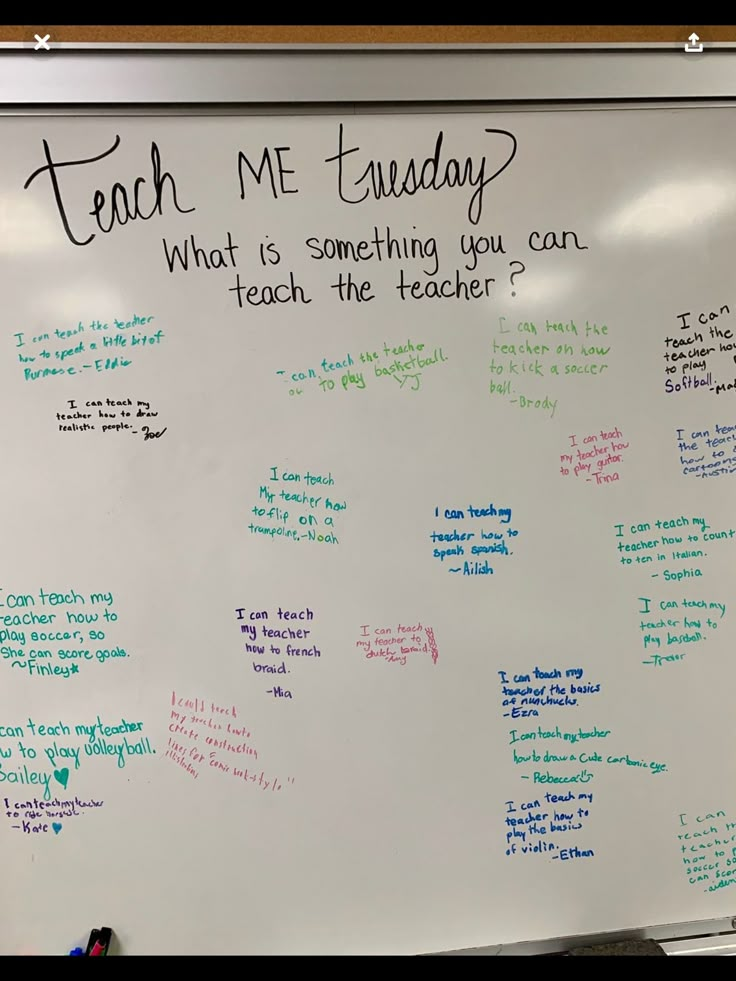 Teach ME Tuesday
What is something you can
teach the teacher?
I can teach the teacher
how to speak a little bit of
Burmese. - Eddie
I can teach my
teacher how to draw
realistic people. - Zoe
I can teach the teacher
TO play basketball.
YJ
I can teach the
teacher on how
to kick a soccer
ball.
-Brody
I can
teach the
teacher how
to play
Softball.
I can teach
my teacher how
to play guitar.
-Trina
I can
the
how to
cartoons
I can teach
My teacher how
to flip on a
trampoline.-Noah
I can teach my
teacher how to
speak spanish.
~Ailish
I can teach my
teacher how to count
to ten in Italian.
- Sophia
I can teach my
teacher how to
play soccer, so
She can score goals.
~Finley
I can teach
my teacher
how to french
braid.
-Mia
I can teach
my teacher to
dutch braid.
-Amy
I can teach my
teacher how to
play baseball.
-Trevor
I can teach my
teacher the basics
of nunchucks.
-Ezra
can teach my teacher
to play volleyball.
Bailey
I could teach
my teacher how to
create construction
lines for comic book-style
I can teach my teacher
how to draw a cute cartoonic eye.
- Rebecca
I can teach my teacher
to ride horses.
-Kate
I can teach my
teacher how to
play the basics
of violin.
-Ethan
I can
teach
teacher
how to
soccer so
can